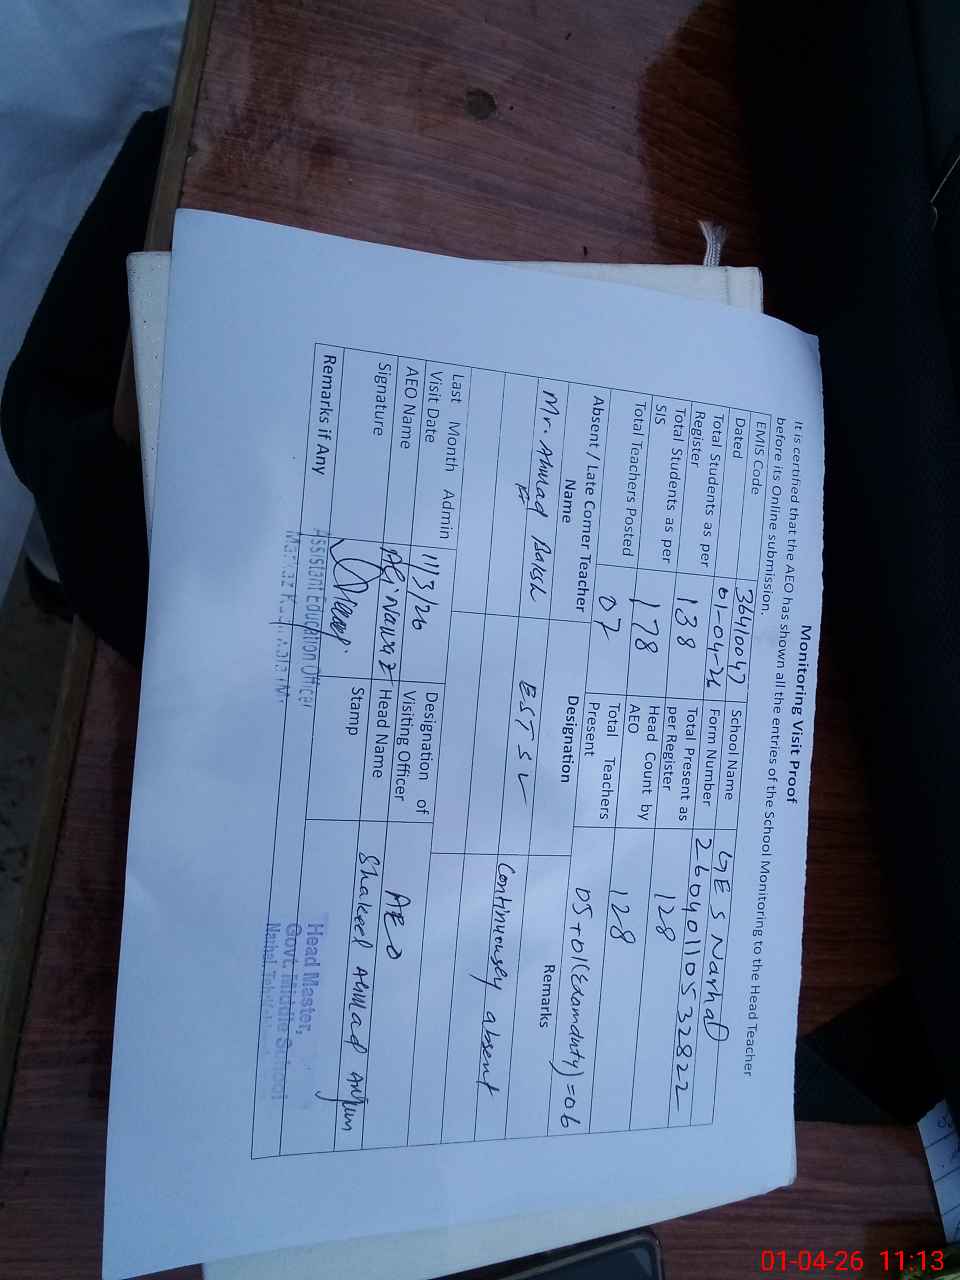 Monitoring Visit Proof
It is certified that the AEO has shown all the entries of the School Monitoring to the Head Teacher
before its Online submission.
EMIS Code 36410047 School Name GES Narhal
Dated 01-04-26 Form Number 26040110532822
Total Students as per Register 138 Total Present as per Register 128
Total Students as per SIS 178 Head Count by AEO 128
Total Teachers Posted 07 Total Teachers Present 05+01(Examduty)=06
Absent / Late Comer Teacher Name Designation Remarks
Mr. Ahmad Baksh EST SV Continuousey absent
Last Month Admin Visit Date 11/3/26 Designation of Visiting Officer AEO
AEO Name Ali Nawaz Head Name Shakeel Ahmad Anjum
Signature Stamp
Remarks if Any
Assistant Education Officer
Markaz
Head Master,
Govt. Middle School
Narhal
01-04-26 11:13